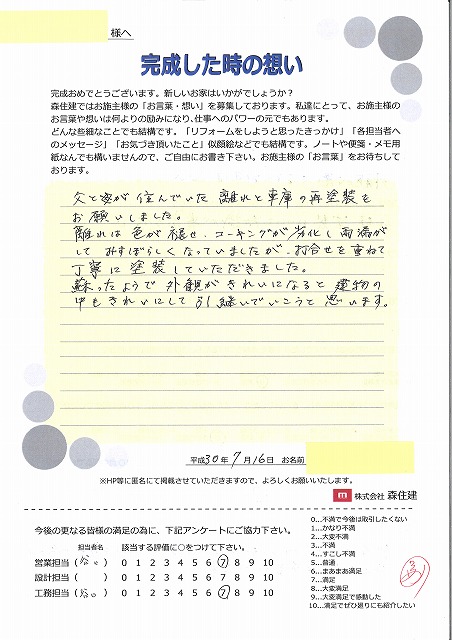 様へ
完成した時の想い
完成おめでとうございます。新しいお家はいかがでしょうか？
森住建ではお施主様の「お言葉・想い」を募集しております。私達にとって、お施主様の
お言葉や想いは何よりの励みになり、仕事へのパワーの元でもあります。
どんな些細なことでも結構です。「リフォームをしようと思ったきっかけ」「各担当者へ
のメッセージ」「お気づき頂いたこと」似顔絵などでも結構です。ノートや便箋・メモ用
紙なんでも構いませんので、ご自由にお書き下さい。お施主様の「お言葉」をお待ちして
おります。
父と妻が住んでいた離れと車庫の再塗装を
お願いしました。
離れは色が褪せ、コーキングが劣化し雨漏が
してみすぼらしくなっていましたが、打合せを重ねて
丁寧に塗装していただきました。
蘇ったようで外観がきれいになると建物の
中もきれいにして引継いでいこうと思います。
平成30年7月16日 お名前
※HP等に匿名にて掲載させていただきますので、よろしくお願いいたします。
m 株式会社 森住建
今後の更なる皆様の満足の為に、下記アンケートにご協力下さい。
担当者名 該当する評価に○をつけて下さい。
営業担当（谷口） 0 1 2 3 4 5 6 7 8 9 10
設計担当（ ） 0 1 2 3 4 5 6 7 8 9 10
工務担当（谷口） 0 1 2 3 4 5 6 7 8 9 10
0…不満で今後は取引したくない
1…かなり不満
2…大変不満
3…不満
4…すこし不満
5…普通
6…まあまあ満足
7…満足
8…大変満足
9…大変満足で感動した
10…満足でぜひ周りにも紹介したい